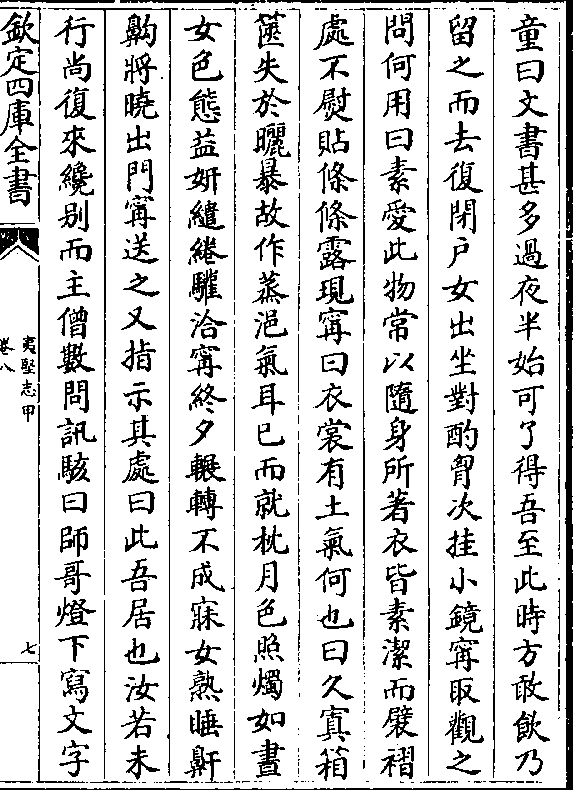 童曰文書甚多過夜半始可了得吾至此時方敢飲乃
留之而去復閉户女出坐對酌胷次挂小鏡甯取觀之
問何用曰素愛此物常以隨身所著衣皆素潔而襞褶
處不熨貼條條露現甯曰衣裳有土氣何也曰久寘箱
篋失於曬暴故作蒸浥氣耳已而就枕月色照燭如晝
女色態益妍繾綣驩洽甯終夕輾轉不成寐女熟睡鼾
齁將曉出門甯送之又指示其處曰此吾居也汝若未
行尚復來纔别而主僧數問訊駭曰師哥燈下寫文字
欽定四庫全書
夷堅志甲
卷八
七